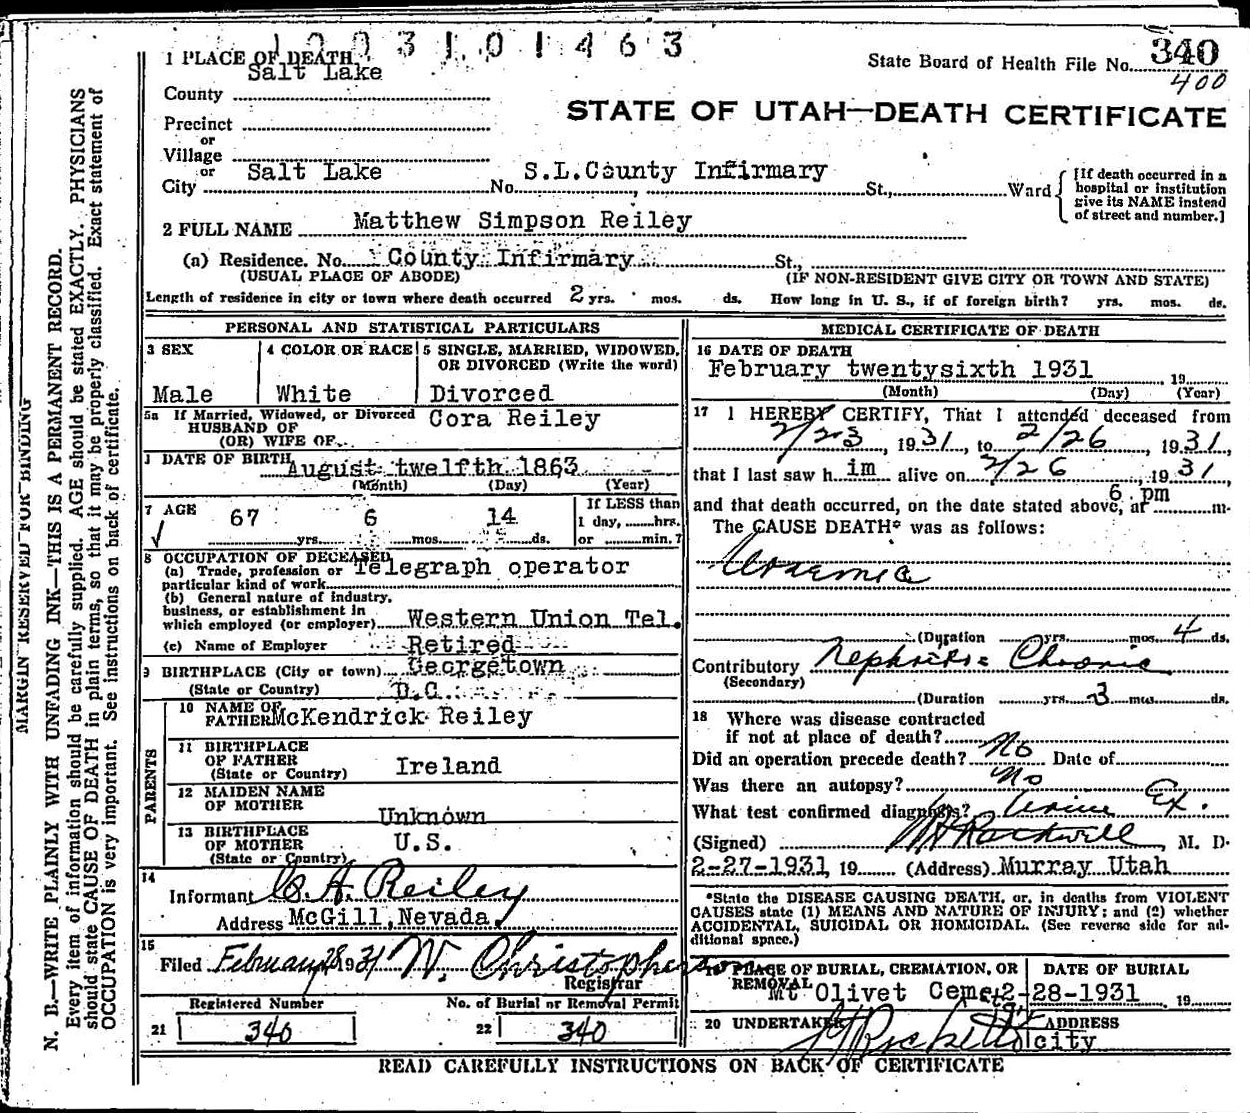 1003101463
1 PLACE OF DEATH
State Board of Health File No. 340
400
Salt Lake
County
STATE OF UTAH—DEATH CERTIFICATE
Precinct
or
Village
or
City Salt Lake No. S.L.County Infirmary St., Ward
[If death occurred in a
hospital or institution
give its NAME instead
of street and number.]
2 FULL NAME Matthew Simpson Reiley
(a) Residence. No. County Infirmary St.,
(USUAL PLACE OF ABODE) (IF NON-RESIDENT GIVE CITY OR TOWN AND STATE)
Length of residence in city or town where death occurred 2 yrs. mos. ds. How long in U. S., if of foreign birth? yrs. mos. ds.
PERSONAL AND STATISTICAL PARTICULARS
3 SEX
Male
4 COLOR OR RACE
White
5 SINGLE, MARRIED, WIDOWED,
OR DIVORCED (Write the word)
Divorced
5a If Married, Widowed, or Divorced
HUSBAND OF Cora Reiley
(OR) WIFE OF
DATE OF BIRTH August twelfth 1863
(Month) (Day) (Year)
7 AGE
67 yrs. 6 mos. 14 ds.
If LESS than
1 day, hrs.
or min.?
8 OCCUPATION OF DECEASED
(a) Trade, profession or Telegraph operator
particular kind of work
(b) General nature of industry,
business, or establishment in
which employed (or employer) Western Union Tel.
(c) Name of Employer Retired
9 BIRTHPLACE (City or town) Georgetown
(State or Country) D.C.
PARENTS
10 NAME OF
FATHER McKendrick Reiley
11 BIRTHPLACE
OF FATHER Ireland
(State or Country)
12 MAIDEN NAME
OF MOTHER Unknown
13 BIRTHPLACE
OF MOTHER U.S.
(State or Country)
14
Informant C. A. Reiley
Address McGill, Nevada
15
Filed February 28 1931 W. Christopherson
Registrar
Registered Number No. of Burial or Removal Permit
21 340 22 340
MEDICAL CERTIFICATE OF DEATH
16 DATE OF DEATH
February twentysixth 1931 19
(Month) (Day) (Year)
17 I HEREBY CERTIFY, That I attended deceased from
2/23, 1931, to 2/26, 1931,
that I last saw him alive on 2/26, 1931,
and that death occurred, on the date stated above, at 6 pm m.
The CAUSE DEATH* was as follows:
Uraemia
(Duration yrs. mos. 4 ds.
Contributory Nephritis Chronic
(Secondary)
(Duration yrs. 3 mos. ds.
18 Where was disease contracted
if not at place of death?
Did an operation precede death? No Date of
Was there an autopsy? No
What test confirmed diagnosis? Urine Ex.
(Signed) Rockwell, M. D.
2-27-1931, 19 (Address) Murray Utah
*State the DISEASE CAUSING DEATH, or, in deaths from VIOLENT
CAUSES state (1) MEANS AND NATURE OF INJURY; and (2) whether
ACCIDENTAL, SUICIDAL OR HOMICIDAL. (See reverse side for ad-
ditional space.)
19 PLACE OF BURIAL, CREMATION, OR
REMOVAL
DATE OF BURIAL
Mt Olivet Cemet 2-28-1931, 19
20 UNDERTAKER ADDRESS
city
READ CAREFULLY INSTRUCTIONS ON BACK OF CERTIFICATE
MARGIN RESERVED FOR BINDING
N. B.—WRITE PLAINLY WITH UNFADING INK—THIS IS A PERMANENT RECORD.
Every item of information should be carefully supplied. AGE should be stated EXACTLY. PHYSICIANS
should state CAUSE OF DEATH in plain terms, so that it may be properly classified. Exact statement of
OCCUPATION is very important. See instructions on back of certificate.